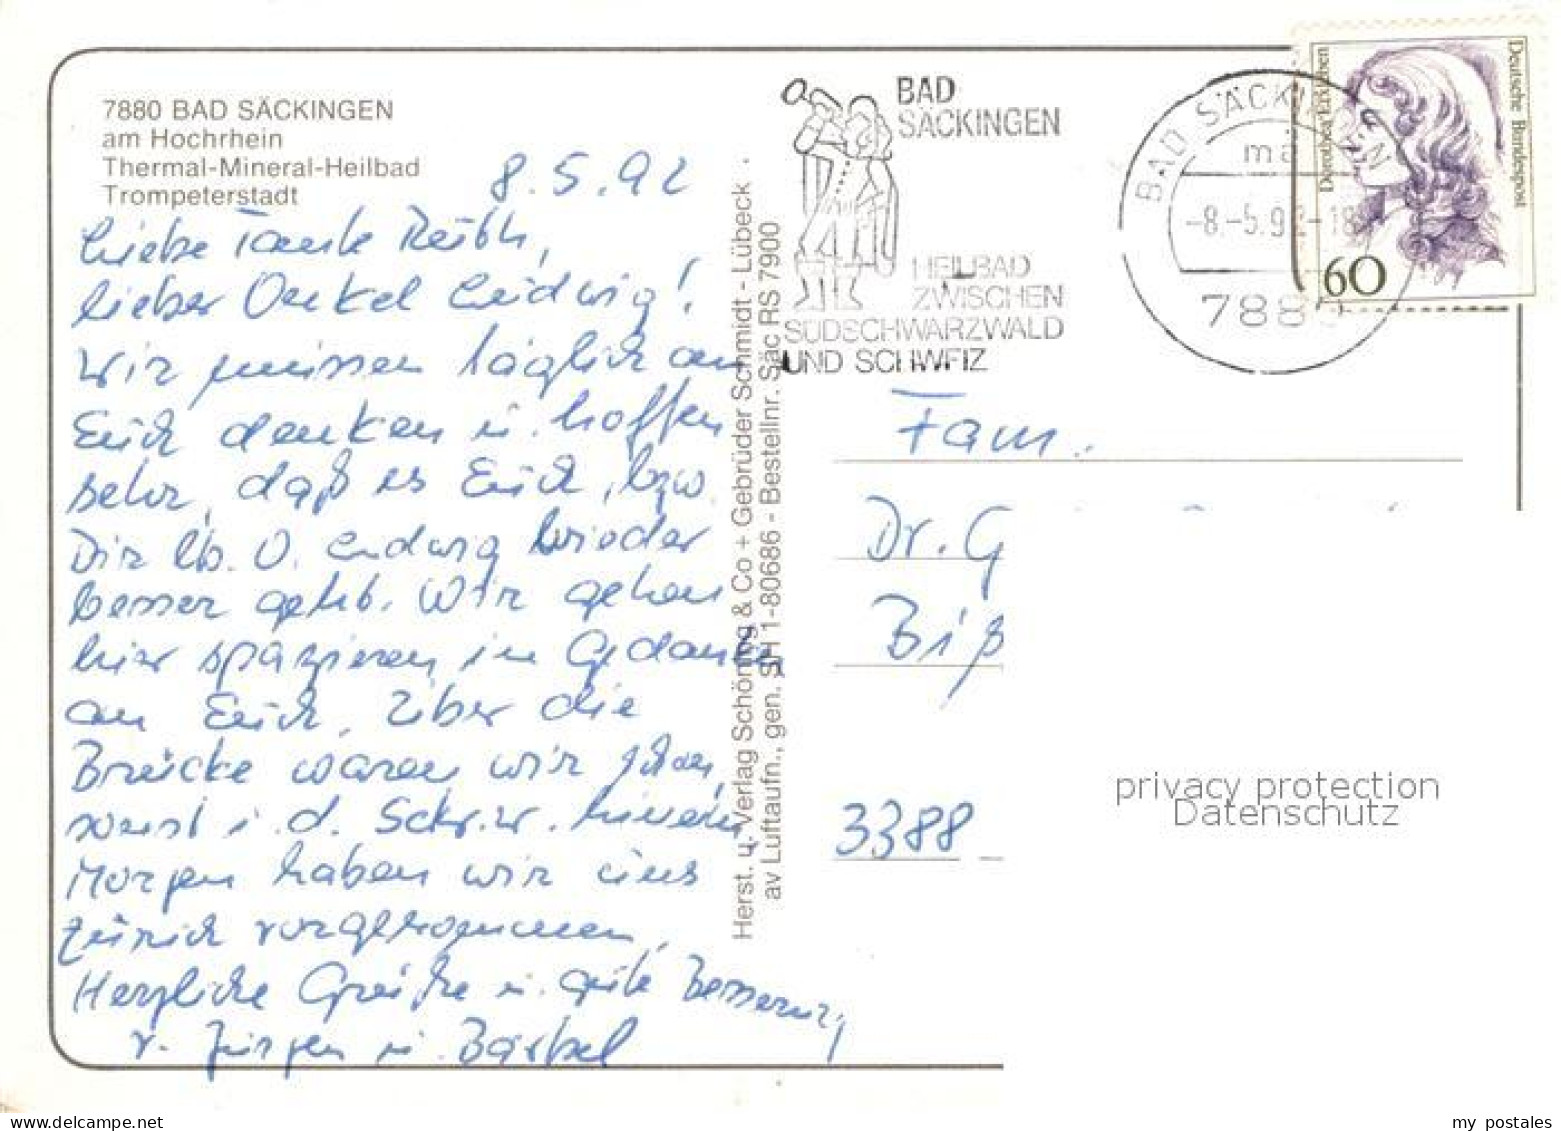 7880 BAD SÄCKINGEN
am Hochrhein
Thermal-Mineral-Heilbad
Trompeterstadt
8.5.92
Liebe Tante Ruth,
lieber Onkel Ludwig!
Wir müssen täglich an
Euch denken u. hoffen
sehr, daß es Euch, bzw.
Dir lb. O. Ludwig wieder
besser geht. Wir gehen
hier spazieren in Gedanken
an Euch. Über die
Brücke waren wir schon,
sonst i. d. Schw.
Morgen haben wir uns
Zürich vorgenommen.
Herzliche Grüße u. gute Besserung
v. Jürgen u. Bärbel
Herst. u. Verlag Schöning & Co + Gebrüder Schmidt - Lübeck
av Luftaufn., gen. SH 1-80686 - Bestellnr. Säc RS 7900
BAD
SÄCKINGEN
HEILBAD
ZWISCHEN
SÜDSCHWARZWALD
UND SCHWEIZ
BAD SÄCKINGEN
ma
-8.-5.92-18
7880
Deutsche Bundespost
Dorothea Erxleben
60
Fam.
Dr. G
Biß
3388
privacy protection
Datenschutz
my postales